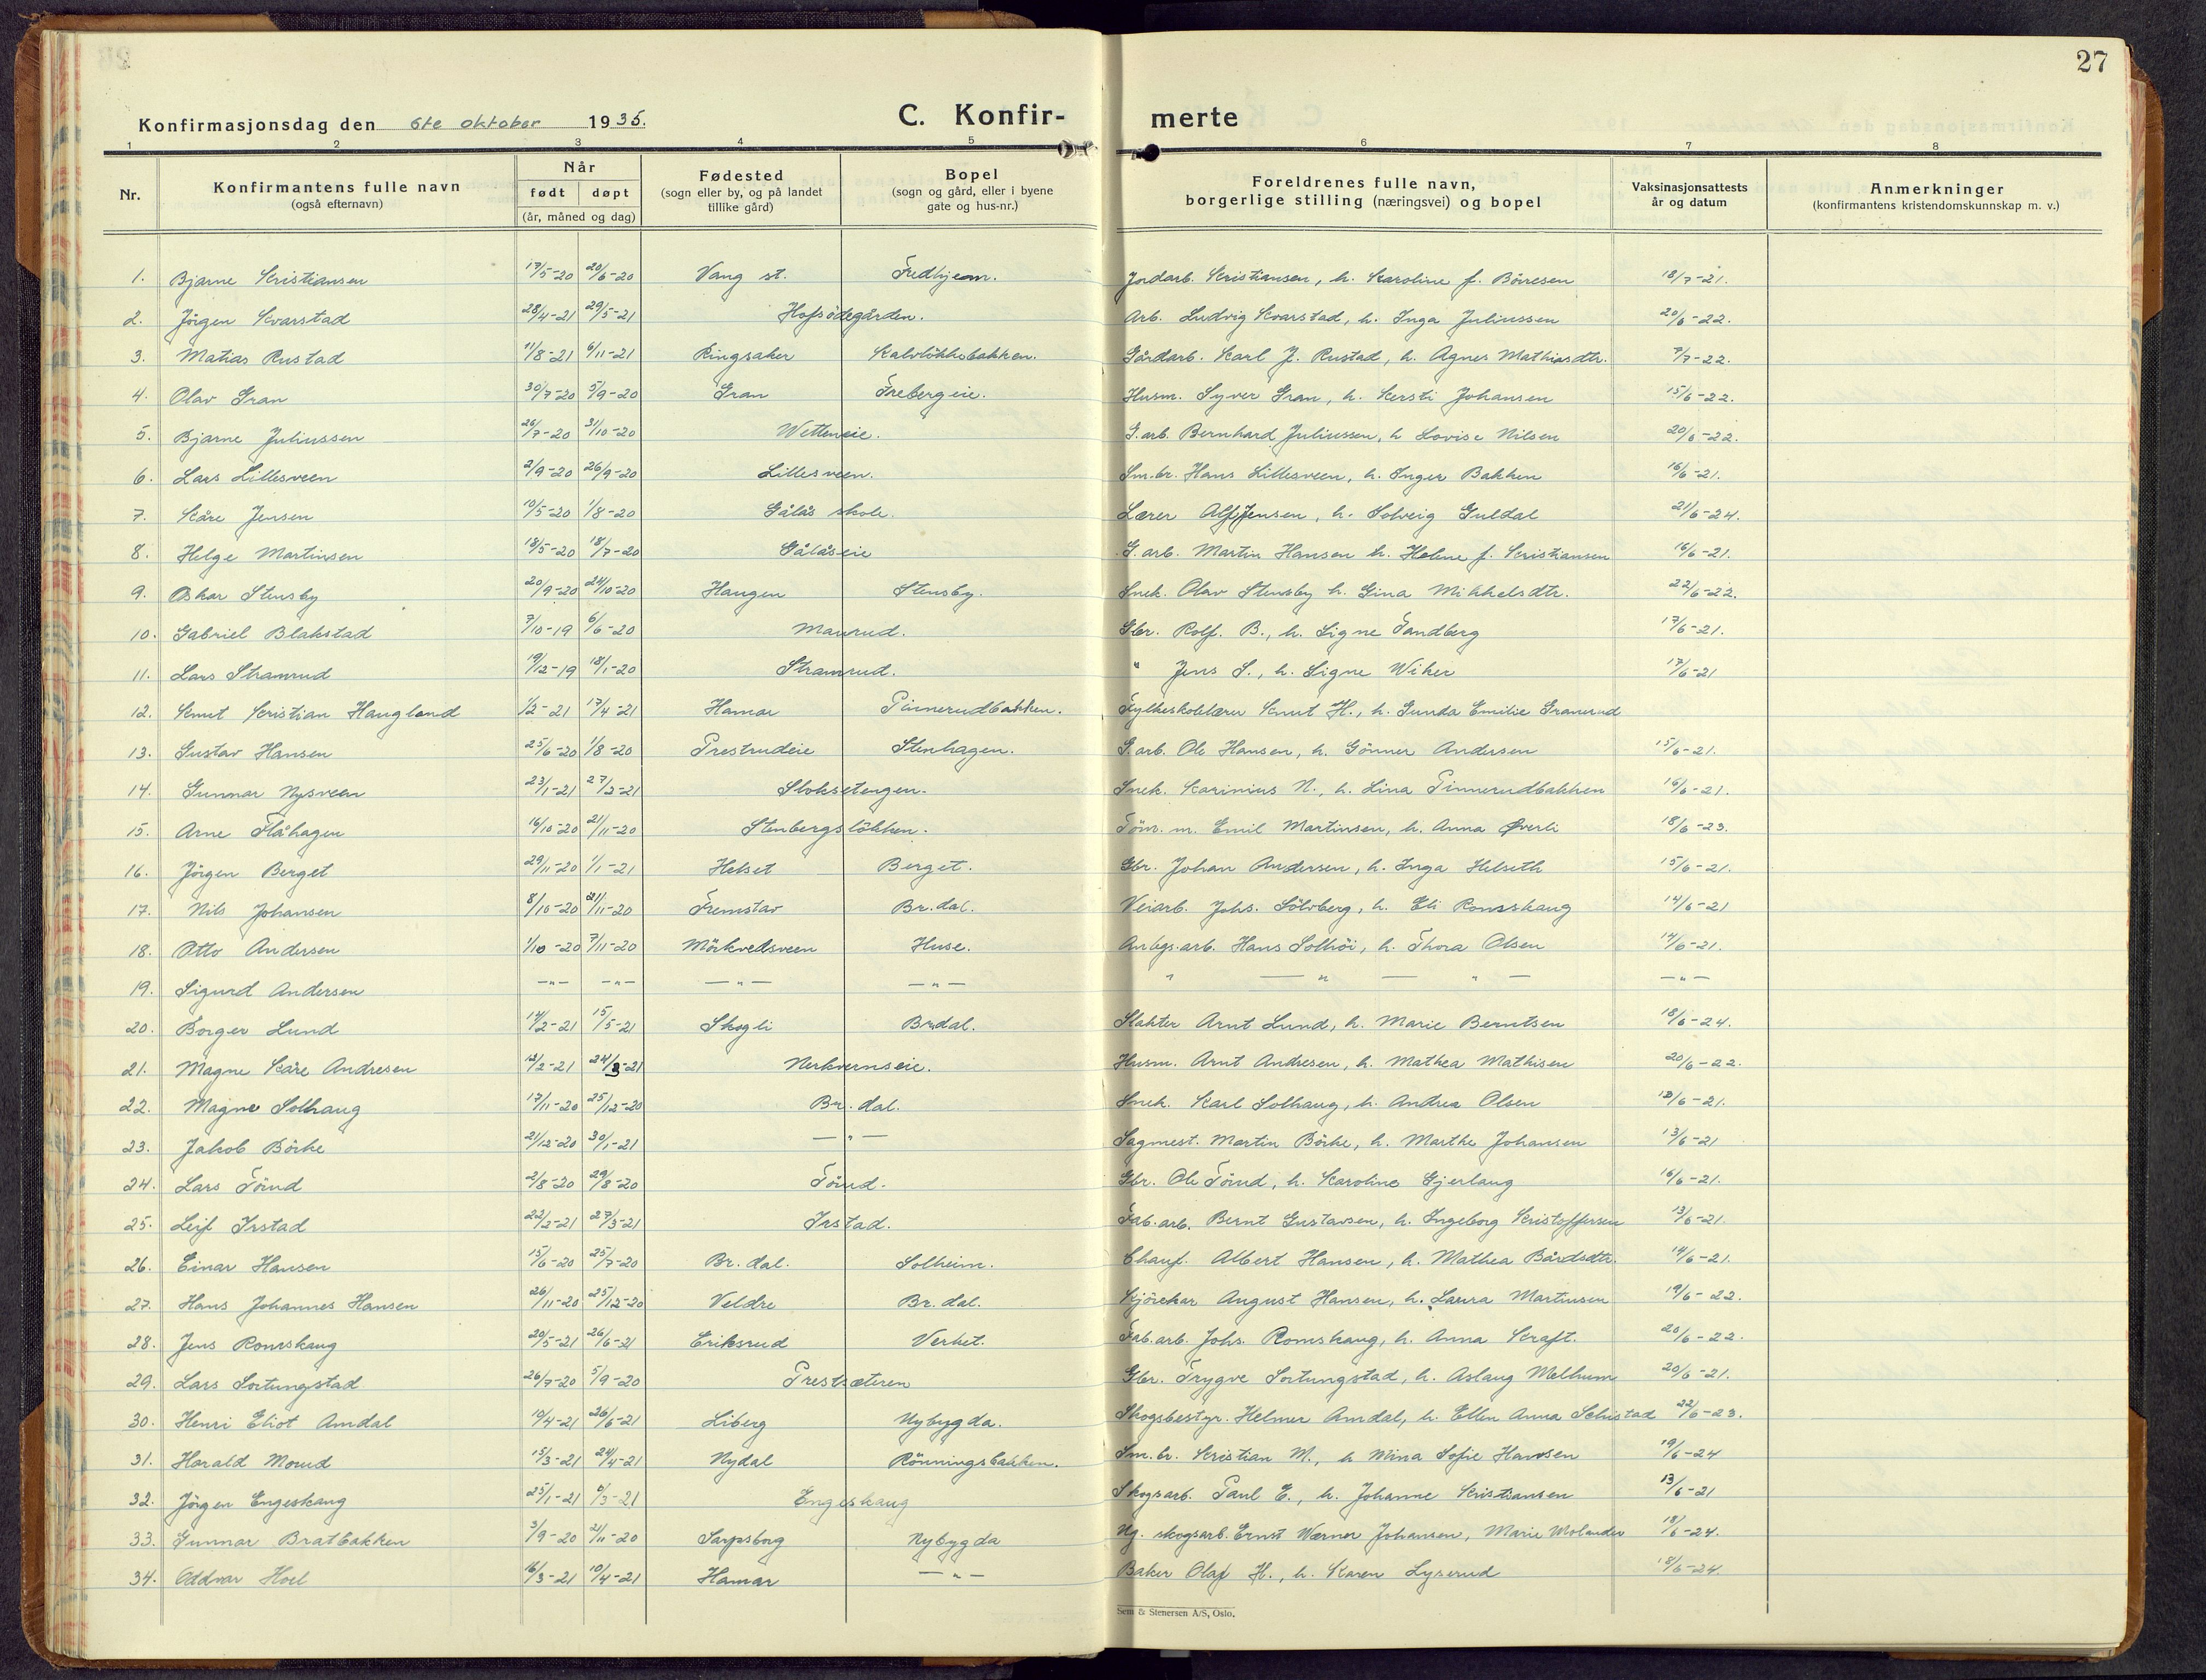 27
Konfirmasjonsdag den 6te oktober 1935.
C. Konfir-merte
1 2 3 4 5 6 7 8
Nr. Konfirmantens fulle navn (også efternavn) Når født døpt (år, måned og dag) Fødested (sogn eller by, og på landet tillike gård) Bopel (sogn og gård, eller i byene gate og hus-nr.) Foreldrenes fulle navn, borgerlige stilling (næringsvei) og bopel Vaksinasjonsattests år og datum Anmerkninger (konfirmantens kristendomskunnskap m. v.)
1. Bjarne Kristiansen 17/5-20 20/6-20 Vang st. Fredhjem. Jordarb. Kristiansen, h. Karoline f. Börresen 18/7-21.
2. Jörgen Kvarstad 28/4-21 29/5-21 Hofsödegården. Arb. Ludvig Kvarstad, h. Inga Juliussen 20/6-22.
3. Matias Rustad 11/8-21 6/11-21 Ringsaker Kalvlökkebakken. Gårdarb. Karl J. Rustad, h. Agnes Mathiasdtr. /7-22.
4. Olav Gran 30/7-20 5/9-20 Gran Frebergeie. Husm. Syver Gran, h. Kersti Johansen 15/6-22.
5. Bjarne Juliussen 26/7-20 31/10-20 Welteneie. G.arb. Bernhard Juliussen, h Lovise Nilsen 20/6-22.
6. Lars Lillesveen 2/9-20 26/9-20 Lillesveen. Sm.br. Hans Lillesveen, h. Inger Bakken 16/6-21.
7. Kåre Jensen 10/5-20 1/8-20 Gålås skole. Lærer Alf Jensen, h. Solveig Guldal 21/6-24.
8. Helge Martinsen 13/5-20 18/7-20 Gålåseie G.arb. Martin Hansen h. Helene f. Kristiansen 16/6-21.
9. Oskar Stensby 20/9-20 24/10-20 Haugen Stensby. Snek. Olav Stensby h. Gina Mikkelsdtr. 22/6-22.
10. Gabriel Blakstad 7/10-19 6/6-20 Maurud. Gbr. Rolf. B., h. Signe Sandberg 17/6-21.
11. Lars Stramrud 19/12-19 18/1-20 Stramrud. " Jens S., h. Signe Wiker 17/6-21
12. Knut Kristian Haugland 1/2-21 17/4-21 Hamar Pinnerudbakken. Fylkesskolelærer Knut H., h. Gunda Emilie Granerud
13. Gustav Hansen 25/6-20 1/8-20 Prestrudeie Stenhagen. G.arb. Ole Hansen, h. Gönner Andersen 15/6-21.
14. Gunnar Nysveen 23/1-21 27/2-21 Sloksetengen. Snek. Karinius N., h. Lina Pinnerudbakken 16/6-21.
15. Arne Flåhagen 16/10-20 21/11-20 Stenbergslökken. Töm. m. Emil Martinsen, h. Anna Øverli 18/6-23.
16. Jörgen Berget 29/11-20 1/1-21 Helset Berget. Gbr. Johan Andersen, h. Inga Helseth 15/6-21.
17. Nils Johansen 8/10-20 21/11-20 Fremstad Br.dal. Veiarb. Johs. Sölvberg, h. Eli Romskaug 14/6-21
18. Otto Andersen 1/10-20 7/11-20 Mörkvedsveen Huse. Anlegs.arb. Hans Solhöi, h. Thora Olsen 14/6-21.
19. Sigurd Andersen —"— —"— —"— —"— " —"— " — —"—
20. Borger Lund 14/2-21 15/5-21 Skogli Br.dal. Slakter Arnt Lund, h. Marie Berntsen 18/6-24.
21. Magne Kåre Andresen 13/2-21 24/3-21 Nerkvernseie. Husm. Arnt Andresen, h. Mathea Mathisen 20/6-22.
22. Magne Solhaug 17/11-20 25/12-20 Br. dal. Snek. Karl Solhaug, h. Andrea Olsen 13/6-21.
23. Jakob Börke 21/12-20 30/1-21 —"— Sagmest. Martin Börke, h. Marthe Johansen 13/6-21
24. Lars Töind 2/8-20 29/8-20 Töind. Gbr. Ole Töind, h. Karoline Gjerlaug 16/6-21.
25. Leif Irstad 22/2-21 27/3-21 Irstad. Fab.arb. Bernt Gustavsen, h. Ingeborg Kristoffersen 13/6-21.
26. Einar Hansen 15/6-20 25/7-20 Br. dal. Solheim. Chauf. Albert Hansen, h. Mathea Bårdsdtr. 14/6-21.
27. Hans Johannes Hansen 26/11-20 25/12-20 Veldre Br. dal. Kjörekar August Hansen, h. Laura Martinsen 19/6-22.
28. Jens Romskaug 20/5-21 26/6-21 Eriksrud Verket. Fab.arb. Johs. Romskaug, h. Anna Kraft. 20/6-22.
29. Lars Sortungstad 26/7-20 5/9-20 Prestsæteren Gbr. Trygve Sortungstad, h. Aslaug Melhum 20/6-21.
30. Henri Eliot Amdal 10/4-21 26/6-21 Liberg Nybygda. Skogsbestyr. Helmer Amdal, h. Ellen Anna Schistad 22/6-23.
31. Harald Moud 15/3-21 24/4-21 Nydal Rönningsbakken. Sm.br. Kristian M., h Mina Sofie Hansen 19/6-24
32. Jörgen Engeskaug 25/1-21 6/3-21 Engeskaug Skogsarb. Paul E., h. Johanne Kristiansen 13/6-21
33. Gunnar Bratbakken 3/9-20 21/11-20 Sarpsborg Nybygda Ug. skogsarb. Ernst Werner Johansen, Marie Molander 18/6-24.
34. Oddvar Hoel 16/3-21 10/4-21 Hamar —"— Baker Olaf H., h. Karen Lyserud 18/6-24.
Sem & Stenersen A/S, Oslo.